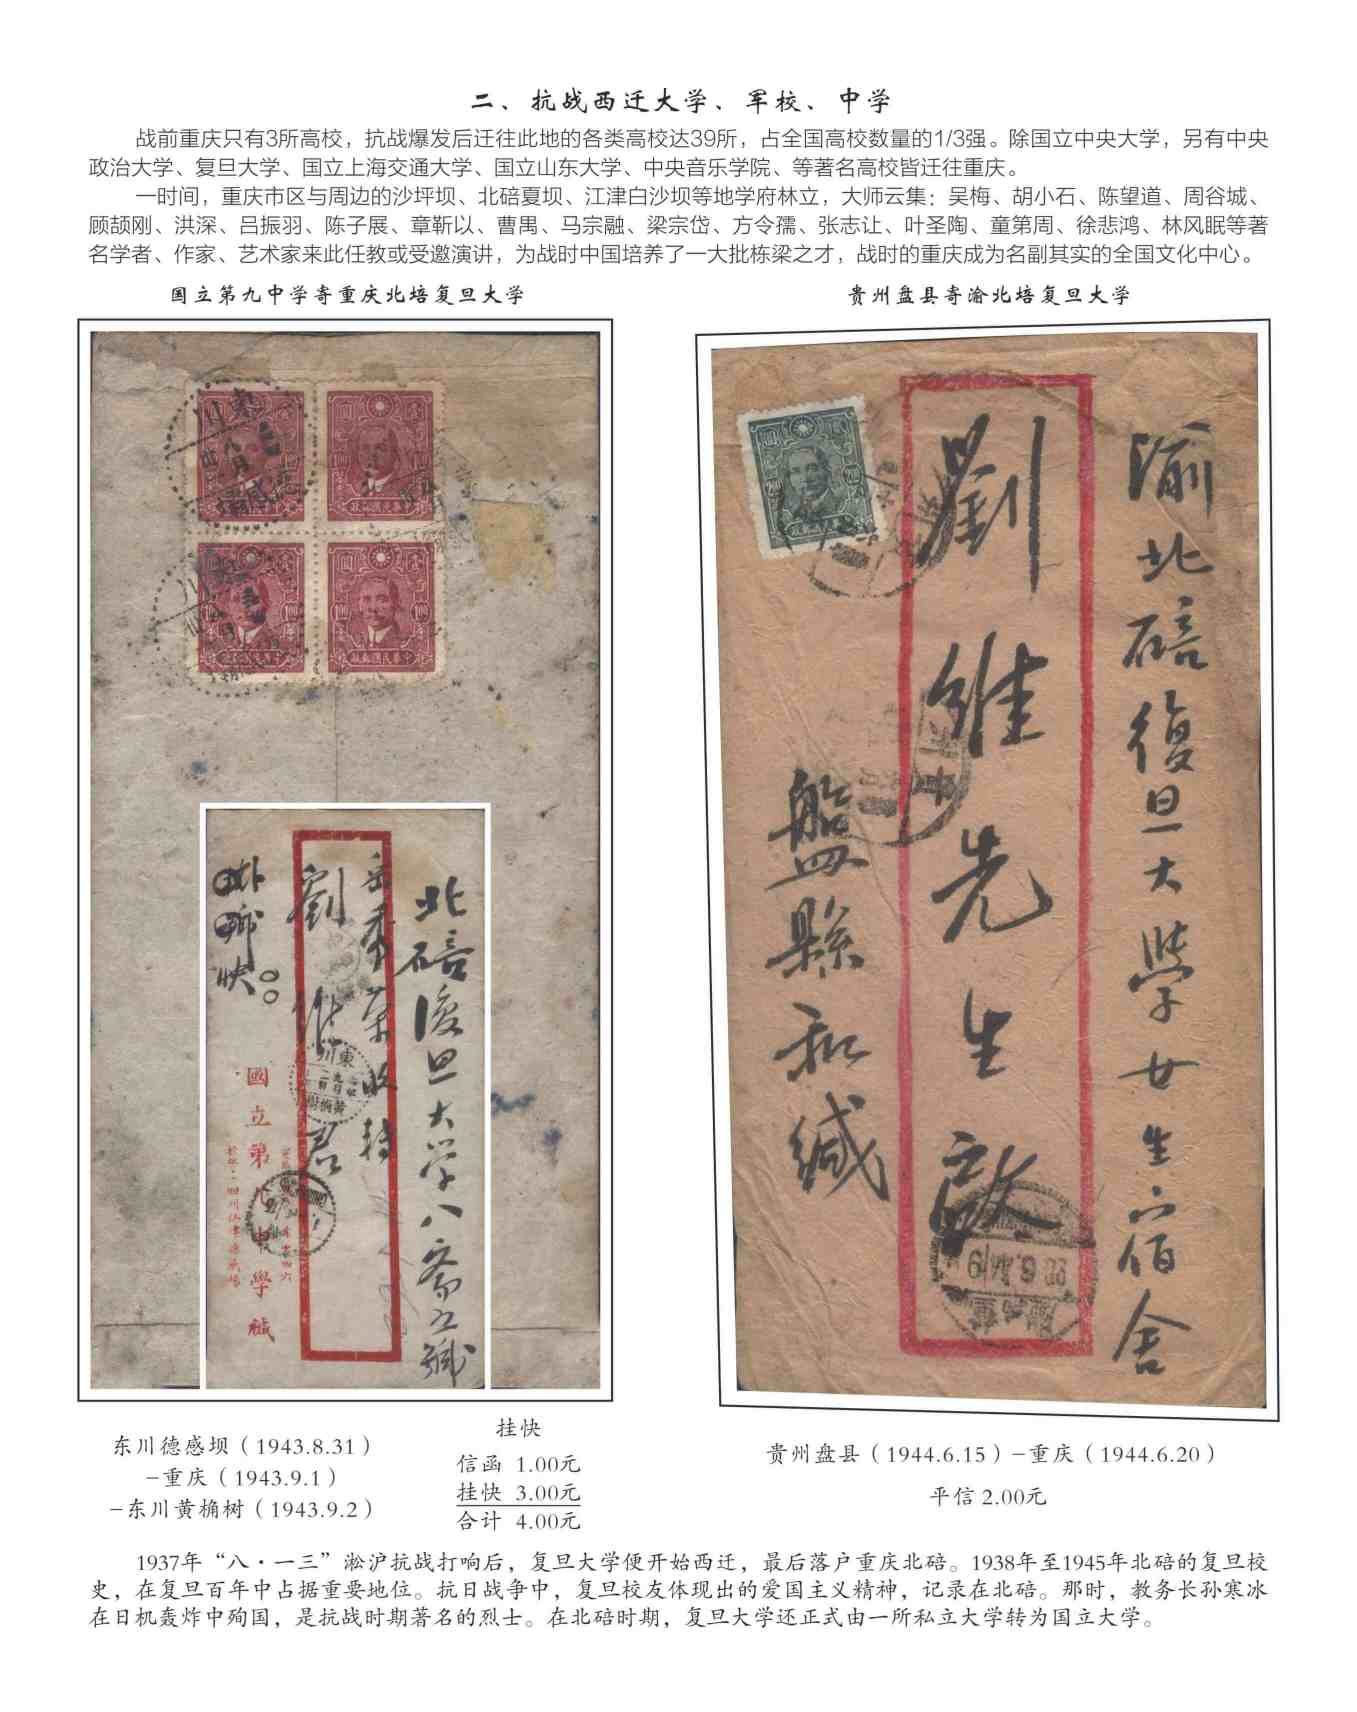 二、抗战西迁大学、军校、中学
战前重庆只有3所高校，抗战爆发后迁往此地的各类高校达39所，占全国高校数量的1/3强。除国立中央大学，另有中央
政治大学、复旦大学、国立上海交通大学、国立山东大学、中央音乐学院、等著名高校皆迁往重庆。
一时间，重庆市区与周边的沙坪坝、北碚夏坝、江津白沙坝等地学府林立，大师云集：吴梅、胡小石、陈望道、周谷城、
顾颉刚、洪深、吕振羽、陈子展、章靳以、曹禺、马宗融、梁宗岱、方令孺、张志让、叶圣陶、童第周、徐悲鸿、林风眠等著
名学者、作家、艺术家来此任教或受邀演讲，为战时中国培养了一大批栋梁之才，战时的重庆成为名副其实的全国文化中心。
国立第九中学寄重庆北培复旦大学
贵州盘县寄渝北培复旦大学
東川
八月
壹圓
1.00
北碚復旦大学八斋五號
劉維君
掛號快
國立第九中學緘
東川
黃桷樹
渝北碚復旦大學女生宿舍
劉維先生啟
盤縣和緘
2.00
20.6.44/9
东川德感坝（1943.8.31）
–重庆（1943.9.1）
–东川黄桷树（1943.9.2）
挂快
信函 1.00元
挂快 3.00元
合计 4.00元
贵州盘县（1944.6.15）–重庆（1944.6.20）
平信 2.00元
1937年“八·一三”淞沪抗战打响后，复旦大学便开始西迁，最后落户重庆北碚。1938年至1945年北碚的复旦校
史，在复旦百年中占据重要地位。抗日战争中，复旦校友体现出的爱国主义精神，记录在北碚。那时，教务长孙寒冰
在日机轰炸中殉国，是抗战时期著名的烈士。在北碚时期，复旦大学还正式由一所私立大学转为国立大学。